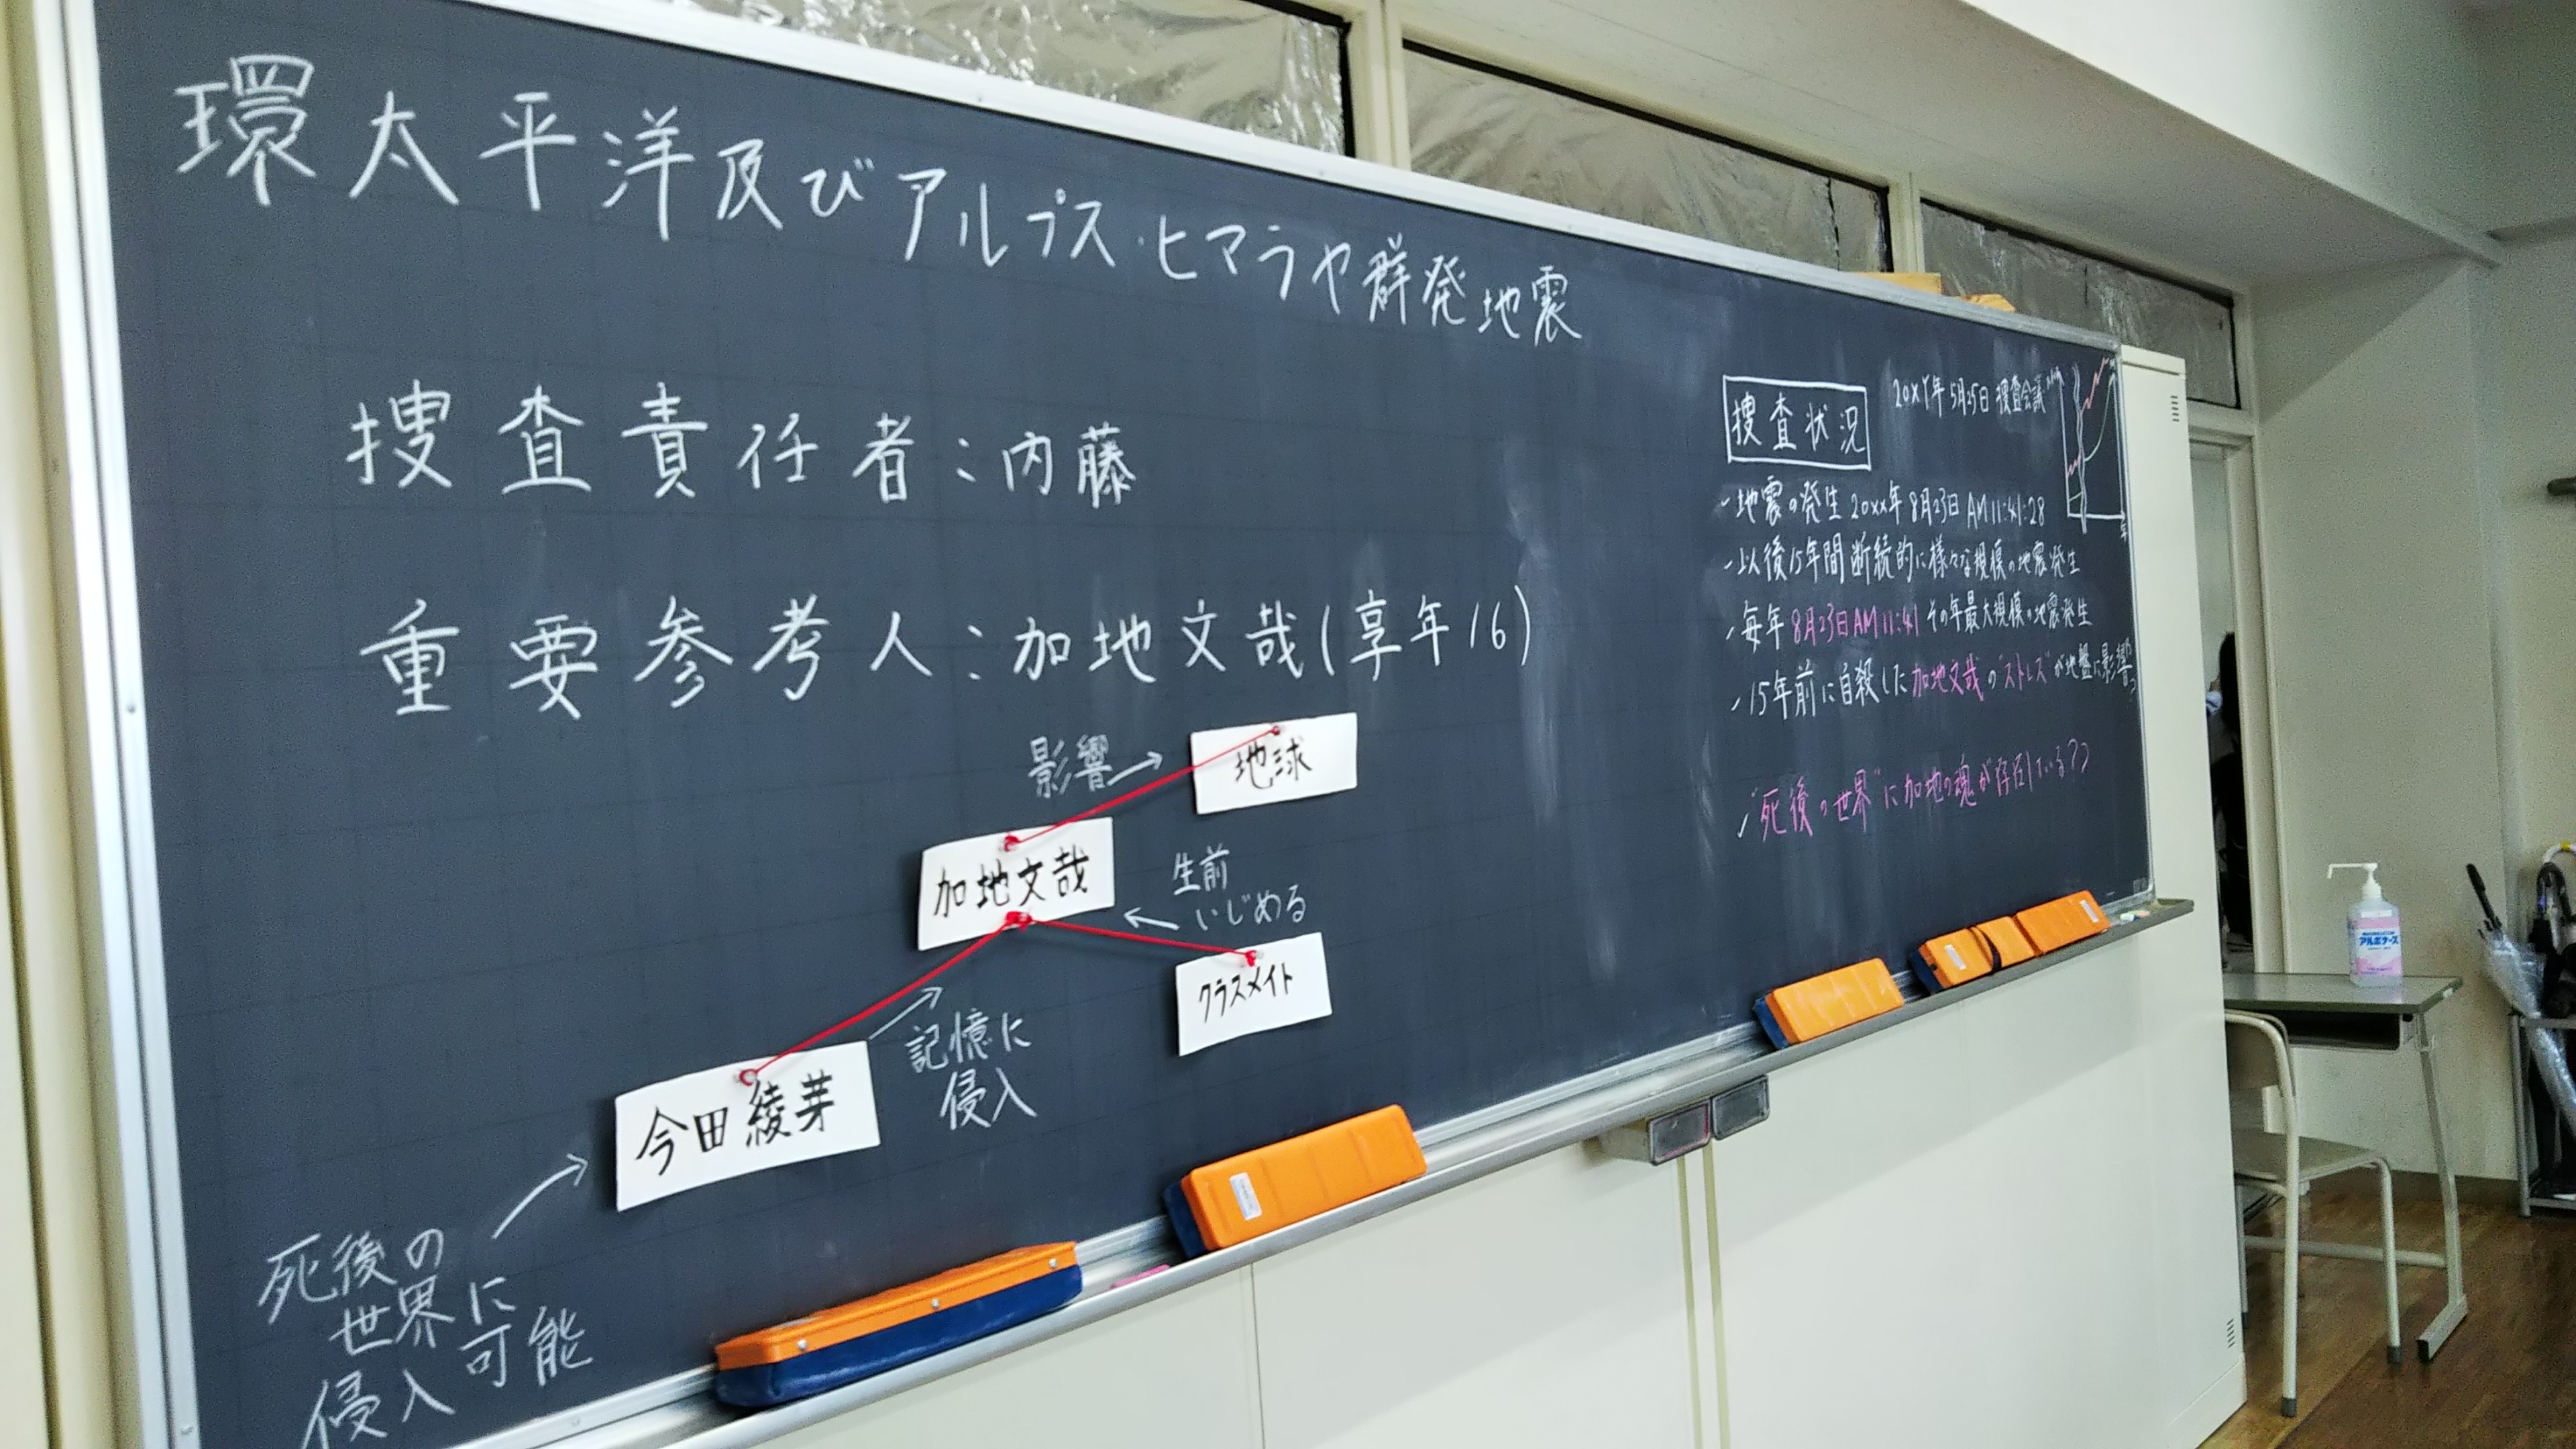 環太平洋及びアルプス・ヒマラヤ群発地震
捜査責任者：内藤
重要参考人：加地文哉(享年16)
影響→
地球
加地文哉
生前
←いじめる
クラスメイト
記憶に
侵入
今田綾芽
死後の
世界に
侵入可能
捜査状況
20XY年5月25日 捜査会議
・地震の発生 20XX年8月23日AM11:41:28
・以後15年間断続的に様々な規模の地震発生
・毎年8月23日AM11:41 その年最大規模の地震発生
・15年前に自殺した加地文哉の"ストレス"が地盤に影響?
✓"死後の世界"に加地の魂が存在している??
アルボナース